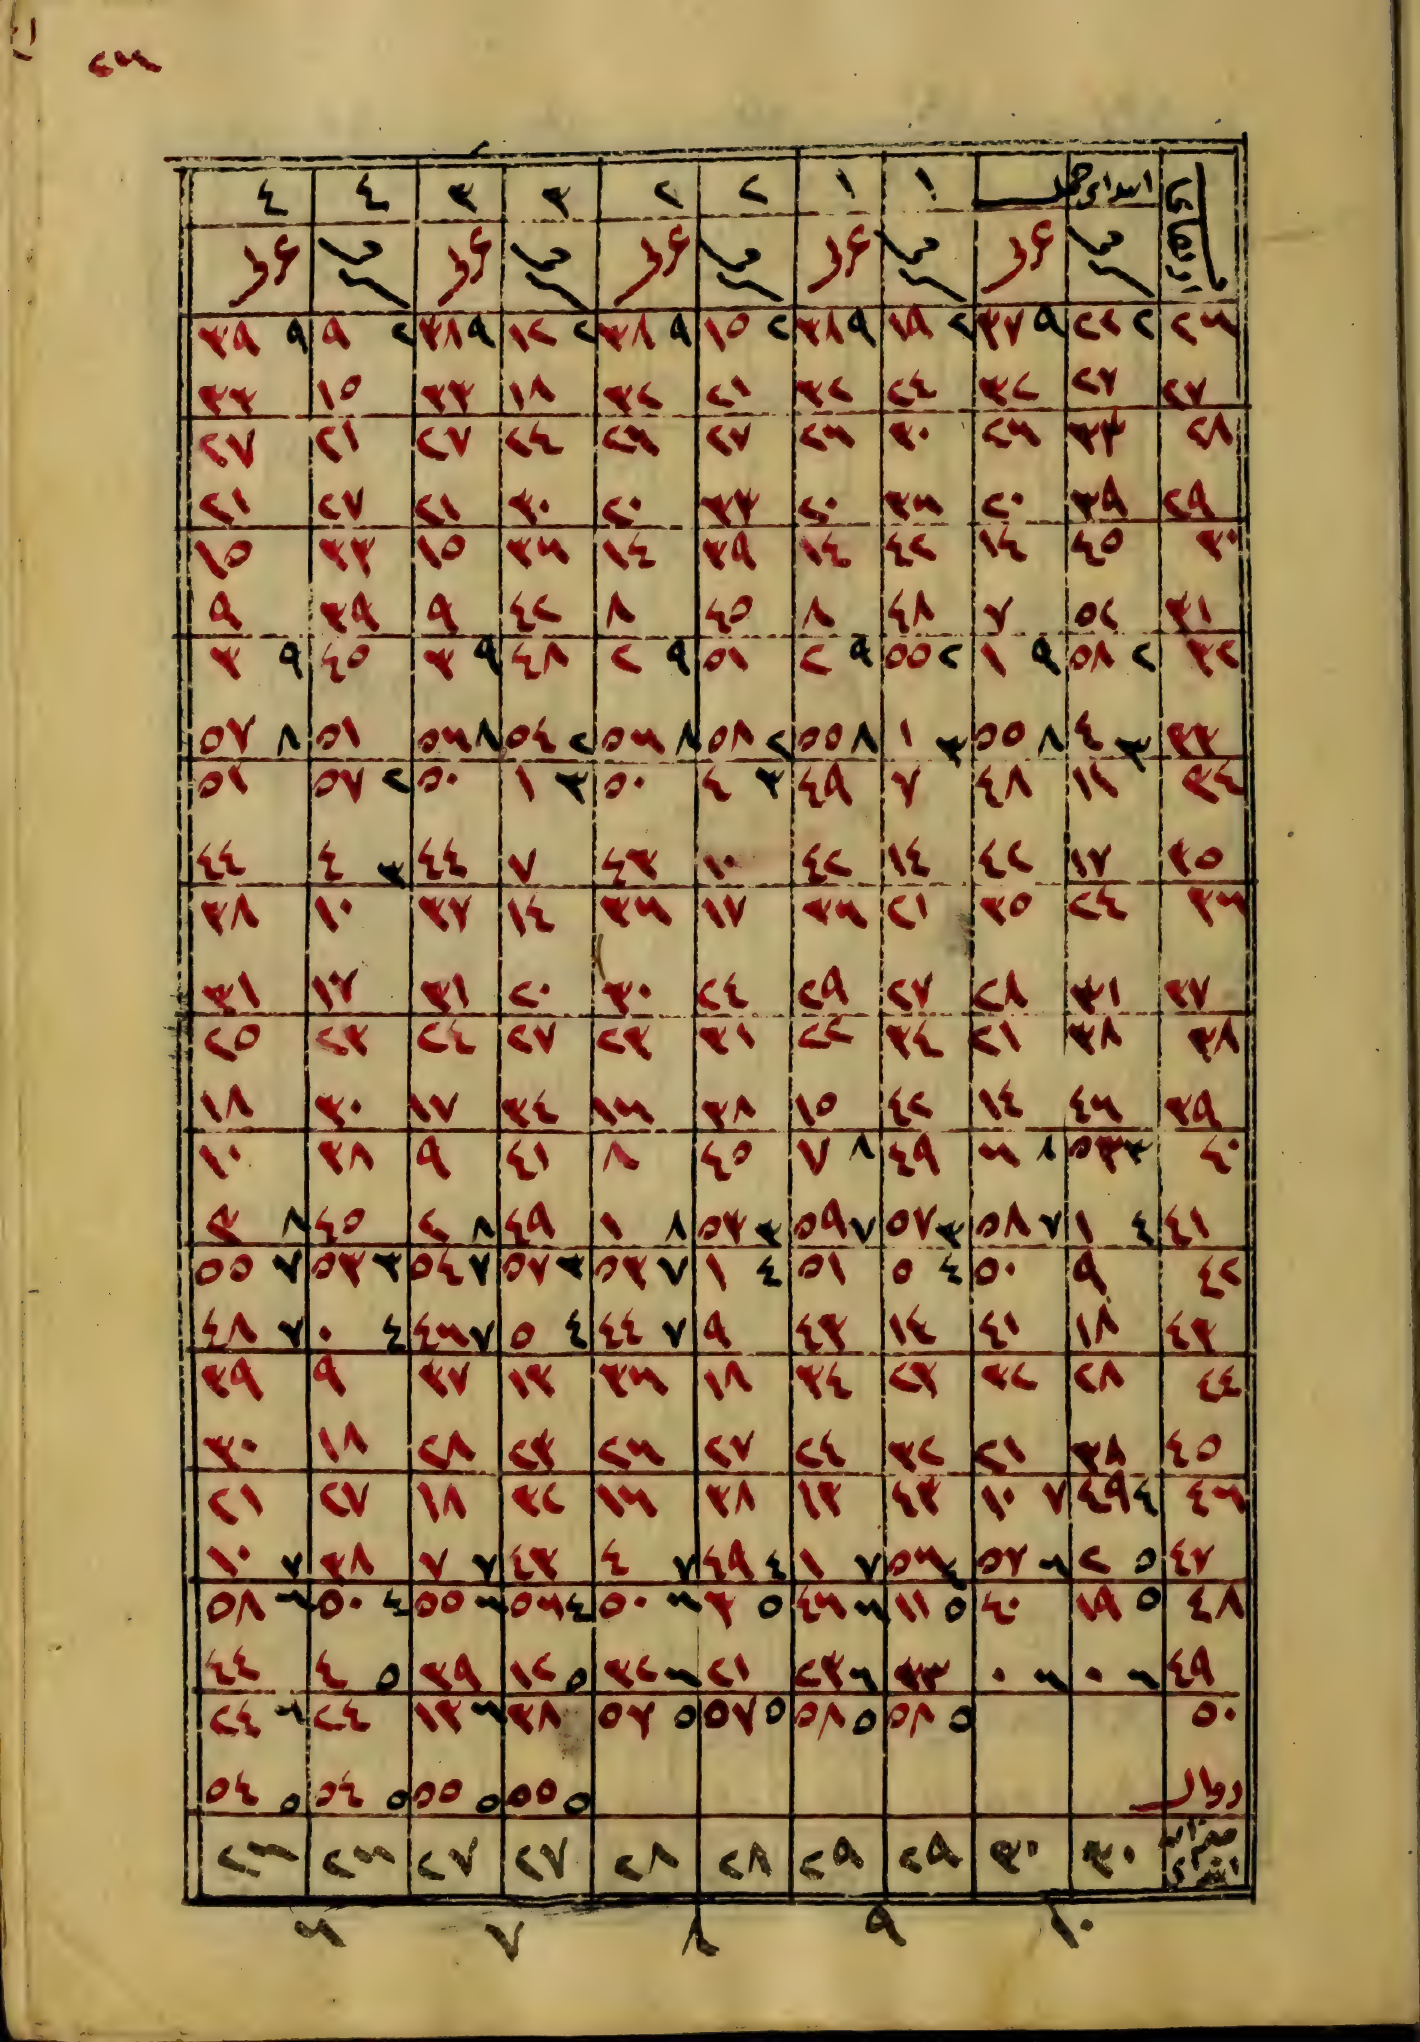 ٢٦
١ ١ ٢ ٢ ٣ ٣ ٤ ٤
٢٦ ٢ ٢٢ ٩ ٣٧ ٢ ١٩ ٩ ٣٨ ٢ ١٥ ٩ ٣٨ ٢ ١٢ ٩ ٣٨ ٢ ٩ ٩ ٣٩
٢٧ ٢٧ ٣٢ ٢٤ ٣٢ ٢١ ٣٢ ١٨ ٣٣ ١٥ ٣٣
٢٨ ٣٣ ٢٦ ٣٠ ٢٦ ٢٧ ٢٦ ٢٤ ٢٧ ٢١ ٢٧
٢٩ ٣٩ ٢٠ ٣٦ ٢٠ ٣٣ ٢٠ ٣٠ ٢١ ٢٧ ٢١
٣٠ ٤٥ ١٤ ٤٢ ١٤ ٣٩ ١٤ ٣٦ ١٥ ٣٣ ١٥
٣١ ٥٢ ٧ ٤٨ ٨ ٤٥ ٨ ٤٢ ٩ ٣٩ ٩
٣٢ ٢ ٥٨ ٩ ١ ٢ ٥٥ ٩ ٢ ٥١ ٩ ٢ ٤٨ ٩ ٣ ٤٥ ٩ ٣
٣٣ ٣ ٤ ٨ ٥٥ ٣ ١ ٨ ٥٥ ٢ ٥٨ ٨ ٥٦ ٢ ٥٤ ٨ ٥٦ ٥١ ٨ ٥٧
٣٤ ١١ ٤٨ ٧ ٤٩ ٣ ٤ ٥٠ ٣ ١ ٥٠ ٢ ٥٧ ٥١
٣٥ ١٧ ٤٢ ١٤ ٤٢ ١٠ ٤٣ ٧ ٤٤ ٣ ٤ ٤٤
٣٦ ٢٤ ٣٥ ٢١ ٣٦ ١٧ ٣٦ ١٤ ٣٧ ١٠ ٣٨
٣٧ ٣١ ٢٨ ٢٧ ٢٩ ٢٤ ٣٠ ٢٠ ٣١ ١٧ ٣١
٣٨ ٣٨ ٢١ ٣٤ ٢٢ ٣١ ٢٣ ٢٧ ٢٤ ٢٣ ٢٥
٣٩ ٤٦ ١٤ ٤٢ ١٥ ٣٨ ١٦ ٣٤ ١٧ ٣٠ ١٨
٤٠ ٣ ٥٣ ٨ ٦ ٤٩ ٨ ٧ ٤٥ ٨ ٤١ ٩ ٣٨ ١٠
٤١ ٤ ١ ٧ ٥٨ ٣ ٥٧ ٧ ٥٩ ٣ ٥٣ ٨ ١ ٤٩ ٨ ٢ ٤٥ ٨ ٣
٤٢ ٩ ٥٠ ٤ ٥ ٥١ ٤ ١ ٧ ٥٣ ٣ ٥٧ ٧ ٥٤ ٣ ٥٣ ٧ ٥٥
٤٣ ١٨ ٤١ ١٤ ٤٣ ٩ ٧ ٤٤ ٤ ٥ ٧ ٤٦ ٤ ٠ ٧ ٤٨
٤٤ ٢٨ ٣٢ ٢٣ ٣٤ ١٨ ٣٦ ١٣ ٣٧ ٩ ٣٩
٤٥ ٣٨ ٢١ ٣٢ ٢٤ ٢٧ ٢٦ ٢٣ ٢٨ ١٨ ٣٠
٤٦ ٤ ٤٩ ٧ ١٠ ٤٣ ١٣ ٣٨ ١٦ ٣٢ ١٨ ٢٧ ٢١
٤٧ ٥ ٢ ٦ ٥٧ ٤ ٥٦ ٧ ١ ٤ ٤٩ ٧ ٤ ٤٣ ٧ ٧ ٣٨ ٧ ١٠
٤٨ ٥ ١٩ ٤٠ ٥ ١١ ٦ ٤٦ ٥ ٣ ٦ ٥٠ ٤ ٥٦ ٦ ٥٥ ٤ ٥٠ ٦ ٥٨
٤٩ ٦ ٠ ٦ ٠ ٣٣ ٦ ٢٣ ٢١ ٦ ٣٢ ٥ ١٢ ٣٩ ٥ ٤ ٤٤
٥٠ ٥ ٥٨ ٥ ٥٨ ٥ ٥٧ ٥ ٥٧ ٣٨ ٦ ١٣ ٢٤ ٦ ٢٤
زوال ٥ ٥٥ ٥ ٥٥ ٥ ٥٤ ٥ ٥٤
٣٠ ٣٠ ٢٩ ٢٩ ٢٨ ٢٨ ٢٧ ٢٧ ٢٦ ٢٦
١٠ ٩ ٨ ٧ ٦